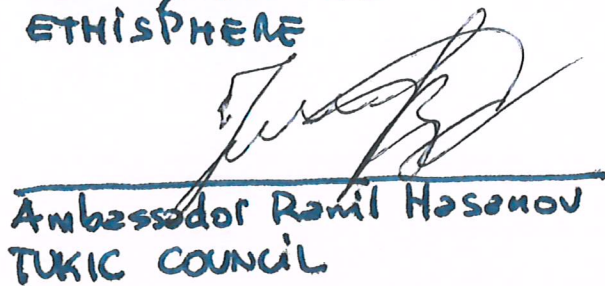 ETHiSPHERE
Ambassador Ramil Hasanov
TUKIC COUNCiL